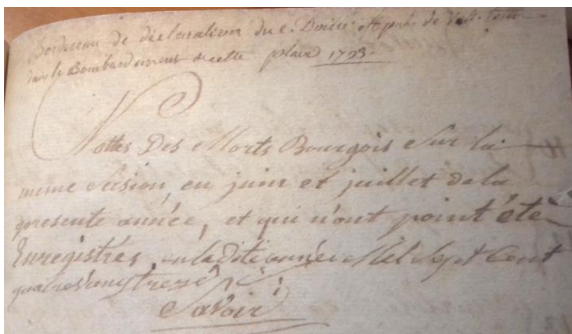 Bordereau de déclaration du c.
dans le Bombardement de cette place 1793.
Nottes Des Morts Bourgois Sur la
meme Scision, en juin et juillet de la
presente année, et qui n'ont point été
Enregistrés, en la Dite année Mil Sept Cent
quatrevingt treize
Savoir